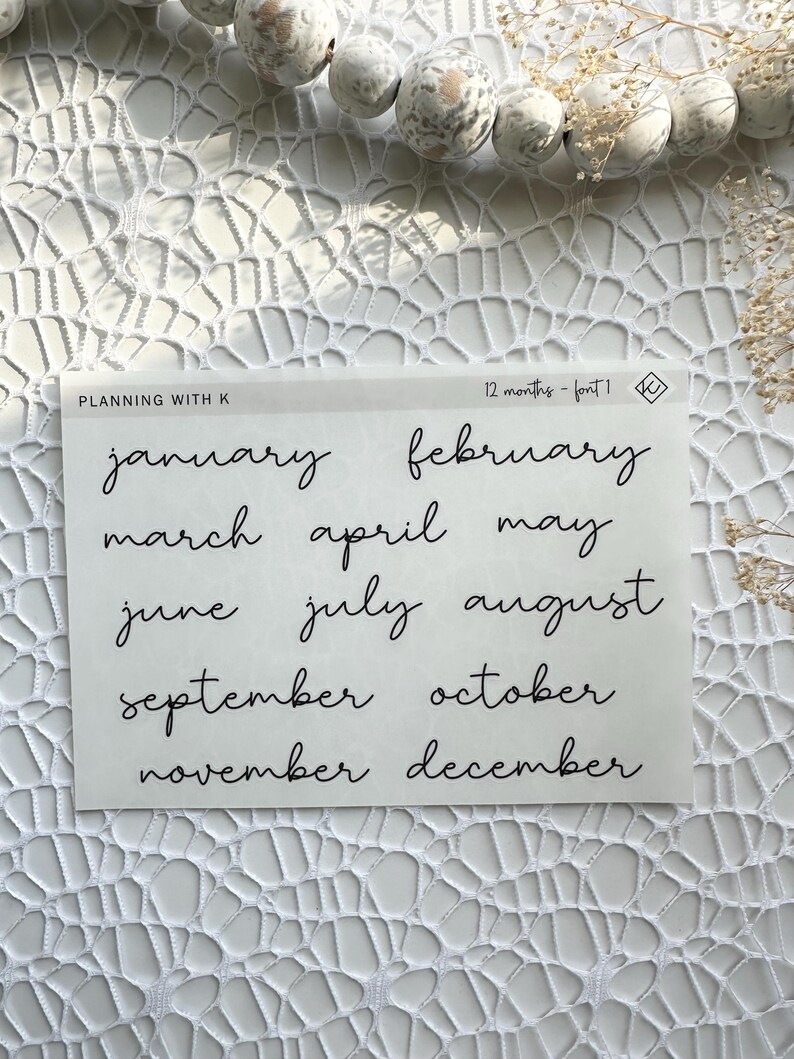 PLANNING WITH K 12 months - font 1 K
january february
march april may
june july august
september october
november december